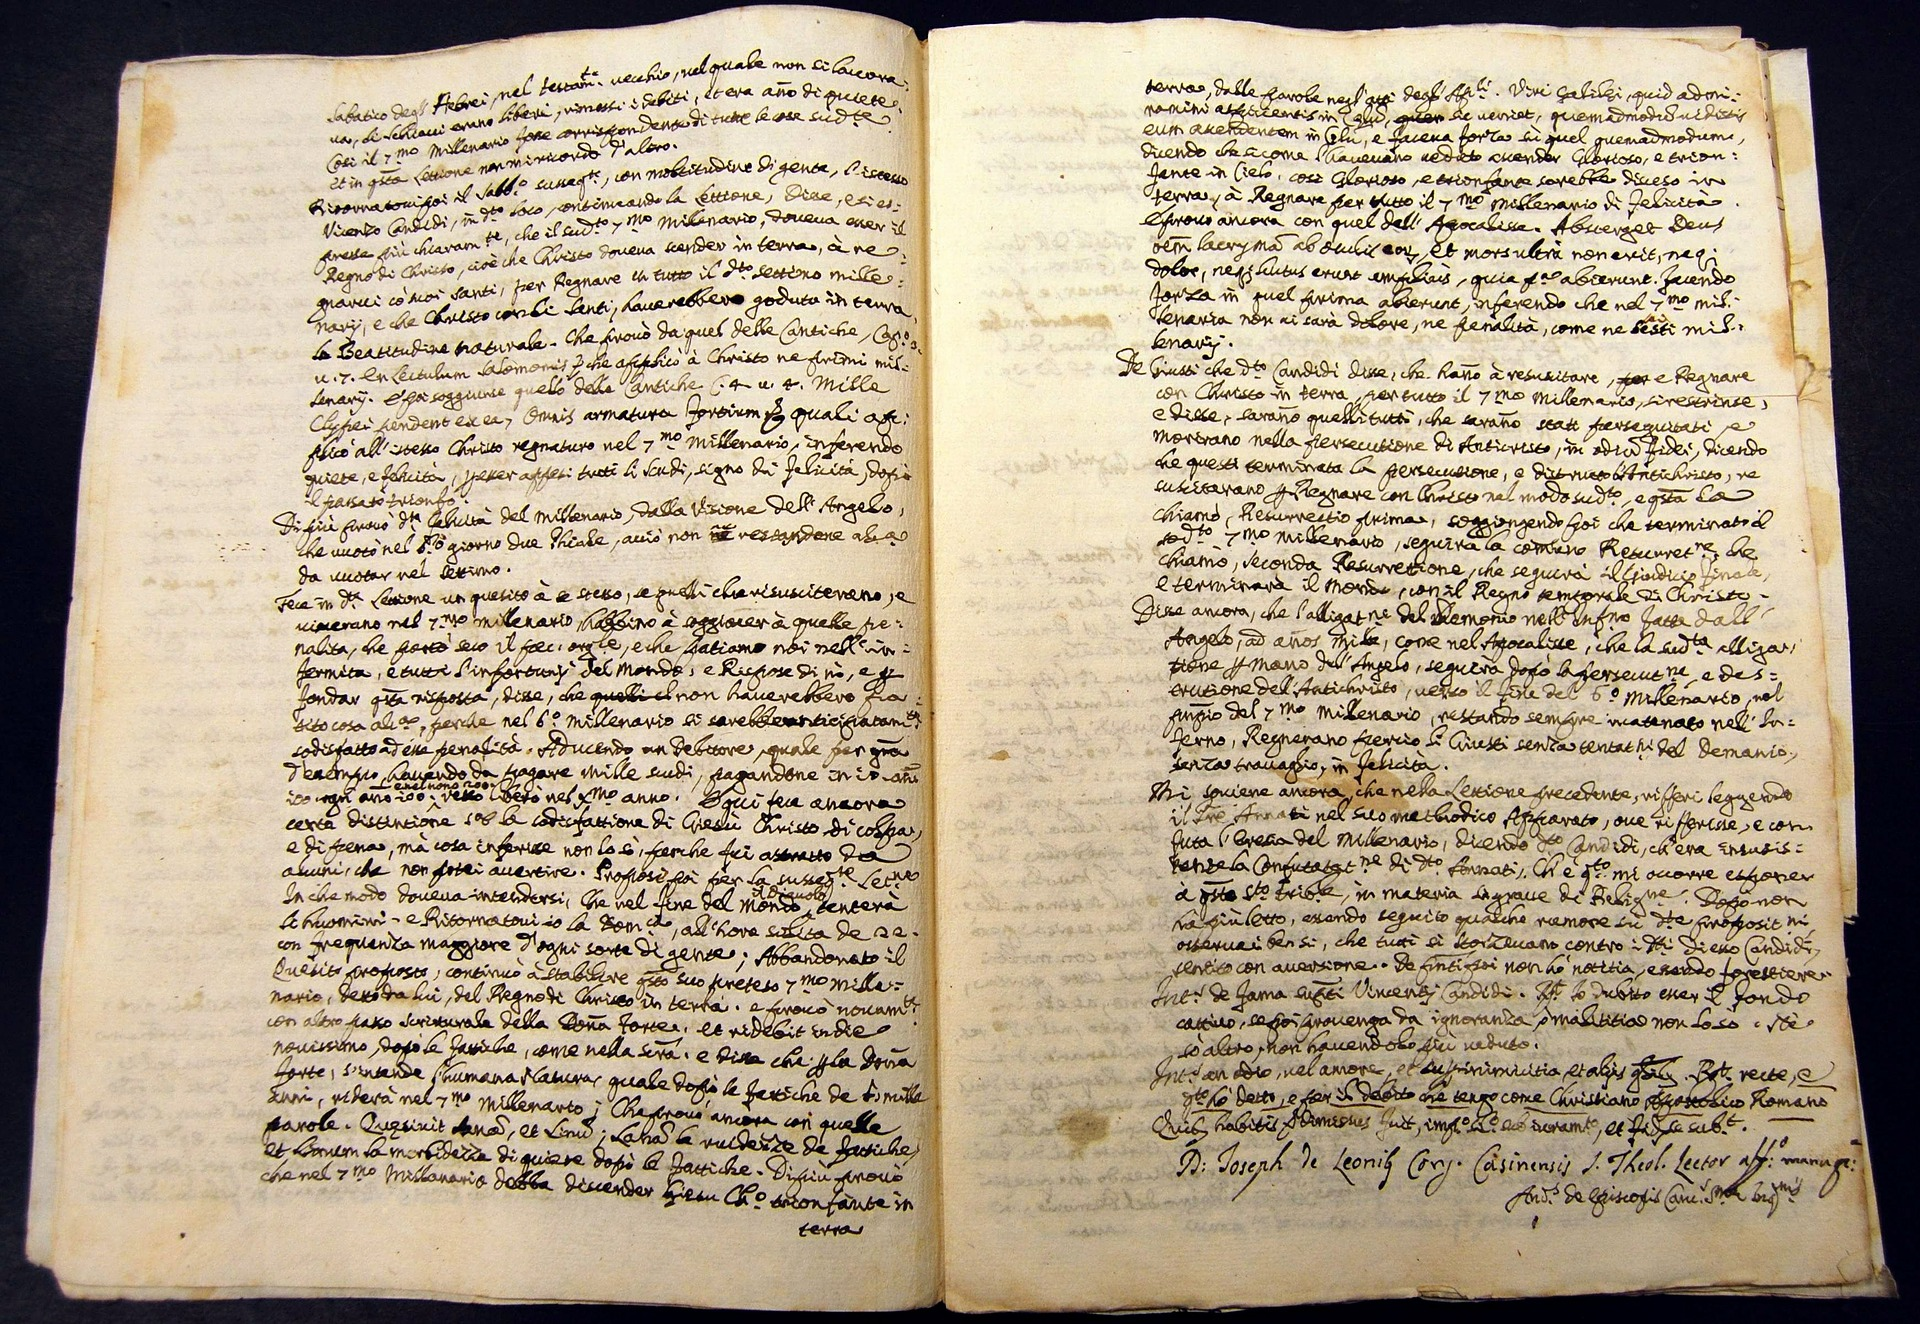 Sabatico degl' Hebrei, nel testam.te vecchio, nel quale non si lavora:
va, li schiavi erano liberi, rimessi i debiti, et era año di quiete.
Così il 7.mo Millenario fosse corrispondente di tutte le cose sud.te
et in q̃sta Lettione non mi ricordo d'altro.
Ritornatovi poi il Sabb.o susseg.te, con moltitudine di gente, l'istesso
Vicenzo Candidi, in d.to loco, continuando la Lettione, Disse, e si es:
presse più chiaram.te, che il sud.to 7.mo Millenario, doueua esser il
Regno di Christo, cioè che Christo doueua scender in terra, à re:
gnarui cò suoi santi, per Regnare in tutto il d.to settimo mille:
nario, e che Christo con li Santi, hauerebbero goduta in terra
la Beatitudine naturale. Che prouò da quel delle Cantiche, Cap.o 3.
u. 7. En Lectulum Salomonis che applicò à Christo ne primi mil:
lenarij. E poi soggiunse quello delle Cantiche C. 4. u. 4. Mille
Clypei pendent ex ea, Omnis armatura fortium quali ap:
plicò all'istesso Christo regnaturo nel 7.mo Millenario, inferendo
quiete, e felicità, p esser appesi tutti li scudi, signo di felicità, dopò
il passato trionfo.
Di più prouò d.ta felicità del Millenario, dalla Visione dell'Angelo,
che uuotò nel giorno due fhiale, acciò non restandone altra
da uuotar nel settimo.
Fece in d.ta Lettione un quesito à se stesso, se quelli che risusciterano, e
uiuerano nel 7.mo millenario, habbino à soggiacer à quelle pe:
nalità, che portò seco il pecc. orig.le, e che patiamo noi nell'in:
fermità, e tutti l'infortunij del Mondo, e Rispose di nò, e p
fondar q̃sta risposta, disse, che quelli non hauerebbero pa:
tito cosa al.a, perche nel 6.o Millenario si sarebbe anticipatam.te
sodisfatto ad esse penalità. Aducendo un Debitore, quale per
d'esempio, hauendo da pagare mille scudi, pagandone in
ogni año 100, e nel nono 200 resta liberò nel X.mo anno. E qui fece ancora
certa distintione la sodisfattione di Giesù Christo di colpa,
e di pena, mà cosa inferisse non lo sò, perche fui astratto da
amici, che non potei auertire. Propose poi per la susseg.te Let.ne
In che modo doueua intendersi, che nel fine del mondo, il Diauolo tenterà
li huomini. e Ritornatoui io la Dom.ca, all'hore solita de 22.
con frequenza maggiore d'ogni sorte di gente; Abbandonato il
Quesito proposto, continuò à stabilire q̃sto suo preteso 7.mo Mille:
nario, detto da lui, del Regno di Christo in terra. e prouò nouam.te
con altro passo scritturale della Dona forte, et ridebit in die
nouissimo, dopò le fattiche, come nella scrã. e disse che p la Dona
forte, s'intende l'humana Natura, quale dopò le fattiche de 6. milla
anni, riderà nel 7.mo Millenario; Che prouò ancora con quelle
parole. Quesiuit lanã, et Linũ; La hã la ruidezze de fattiche,
et Linum la morbidezza di quiete dopò le fattiche. Di più prouò
che nel 7.mo Millenario debba discender Giesu Ch.o trionfante in
terra
terra, dalle parole negl'atti degl'Ap.li. Viri Galilei, quid admi:
ramini aspicientis in Celũ, sic veniet, quemadmodũ uidistis
eum ascendentem in Celũ, e faceua forza sù quel quemadmodum,
dicendo che sicome l'haueuano veduto ascender Glorioso, e trion:
fante in Cielo, così Glorioso, e trionfante sarebbe disceso in
terra, à Regnare per tutto il 7.mo Millenario di felicità.
E prouò ancora con quel dell'Apocalisse. Absterget Deus
oẽm lacrymã ab oculis eor, et mors ultrà non erit, neq;
dolor, neq; luctus erunt amplius, quia p.a abierunt. facendo
forza in quel prima abierunt, inferendo che nel 7.mo mil:
lenario non ui sarà dolore, ne penalità, come ne sesti mil:
lenarij.
De Giusti che d.to Candidi disse, che hano à resuscitare, e Regnare
con Christo in terra, per tutto il 7.mo Millenario, si restrinse,
e disse, sarano quelli tutti, che sarano stati perseguitati, e
morirano nella persecutione di Anticristo, in odiũ fidei, dicendo
che questi terminata la persecutione, e distrutto l'Antichristo, re
suscitarano p Regnare con Christo nel modo sud.to, e q̃sta la
chiamò, Resurrectio prima, soggiongendo poi che terminato il
sud.to 7.mo millenario, seguirà la comuno Resurret.ne, che
chiamò, seconda Resurrettione, che seguirà il Giudicio finale,
e terminarà il Mondo, con il Regno temporale di Christo.
Disse ancora, che l'alligat.ne del Demonio nell'Infr.no fatta dall'
Angelo, ad años mille, come nel Apocalisse, che la sud.ta alliga,
tione p mano dell'Angelo, seguirà dopò la persecut.ne, e des:
trutione dell'Antichristo, uerso il fine del 6.o Millenario, nel
prinp̃io del 7.mo Millenario, restando sempre incatenato nell'In:
ferno, Regnerano perciò li Giusti senza tentat.ni del Demonio,
senza trauaglio, in felicità.
Mi souiene ancora, che nella Lettione precedente, rifferì leggendo
il Pre Annati nel suo methodico Apparato, oue riferisse, e con
futa l'Eresia del Millenario, dicendo d.to Candidi, ch'era insusis:
tente la Confutat.ne di d.to Annati, Ch'è q.to mi occorre esponer
à q̃sto S.to Trib.le, in materia si graue di Relig.ne. Dopò non
hà più letto, essendo seguito qualche rumore sù d.te proposit.ni,
osseruai bensì, che tutti si storceuano contro i d.ti di esso Candidi,
sentito con auersione. De Complici poi non hò notitia, essendo forestiere.
Int.s de fama Vincentij Candidi. R.t Io dubito esser il fondo
cattiuo, se poi prouenga da ignoranza, ò malitia non lo sò. Nè
sò altro, non hauendolo più ueduto.
Int.s an odio, uel amore, et inimicitia et alijs R.t recte, e
q.to hò detto, e per il debito che tengo come Christiano Apostolico Romano
Quib habitis dimissus fuit, iuram.to, et se sub.t.
D: Joseph de Leonib Cong. Casinensis S. Theol. Lector aff.o manu pp.a
And.s de Episcopis Canc.s